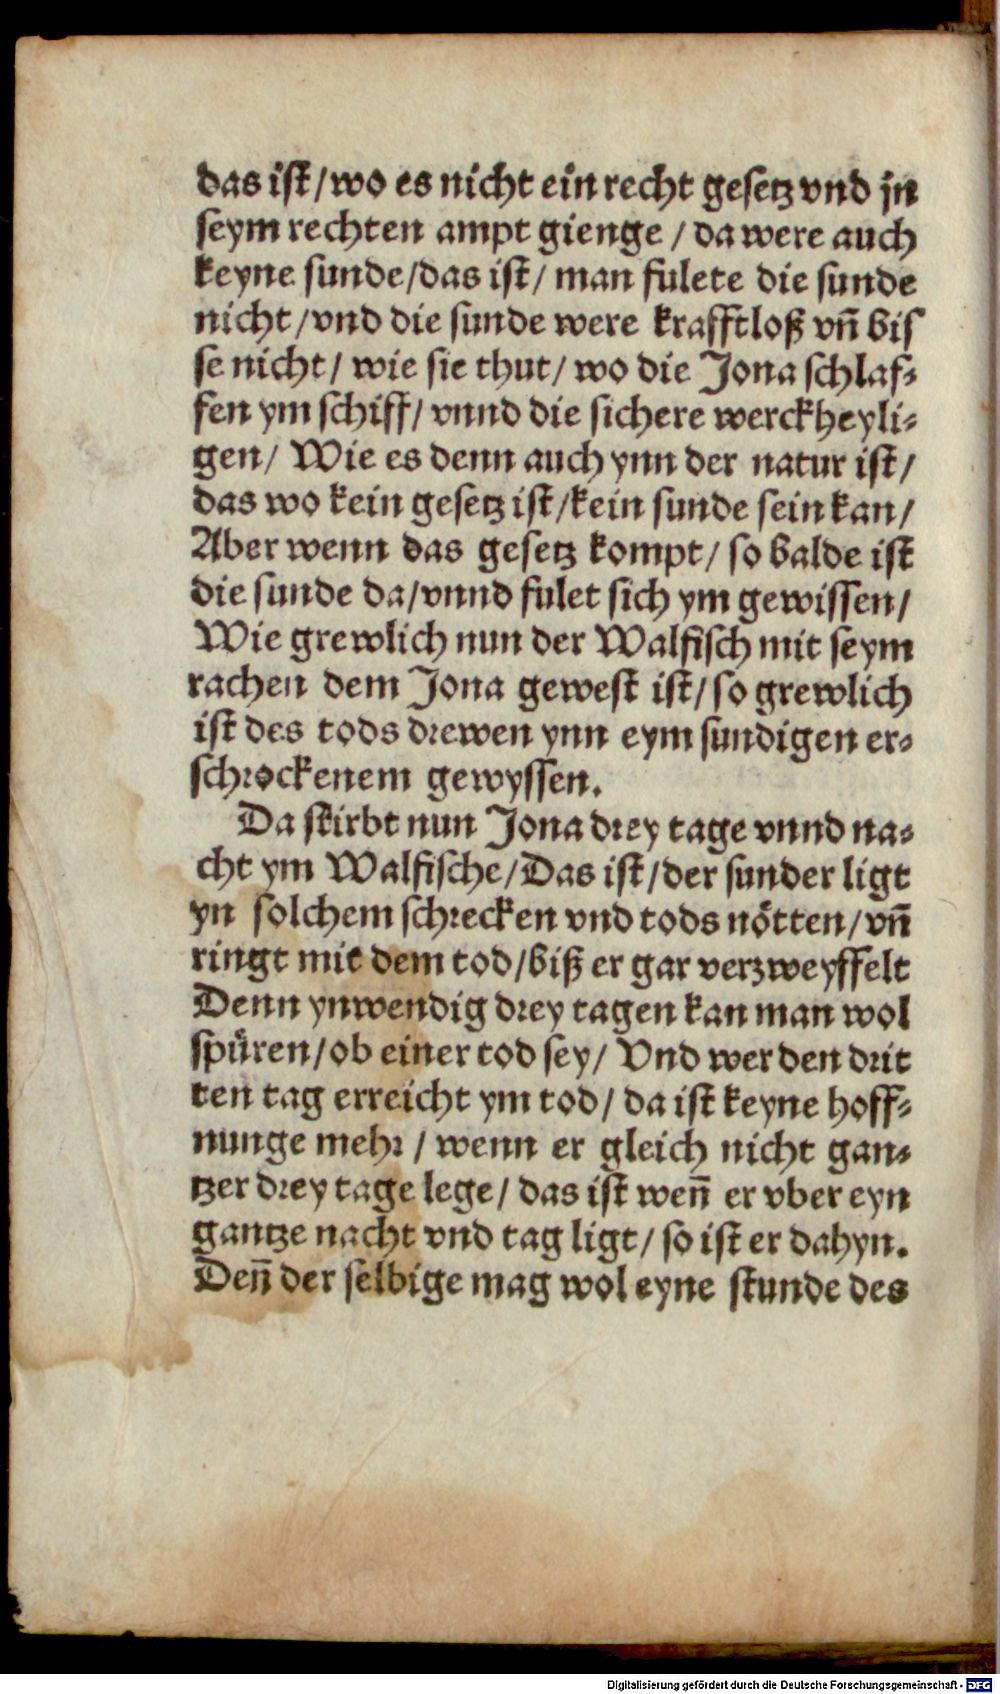 das ist/ wo es nicht ein recht gesetz vnd jn
seym rechten ampt gienge / da were auch
keyne sunde/das ist/ man fulete die sunde
nicht/ vnd die sunde were krafftloß vñ bis
se nicht/ wie sie thut/ wo die Jona schlaf⸗
fen ym schiff/ vnnd die sichere werckheyli⸗
gen/ Wie es denn auch ynn der natur ist/
das wo kein gesetz ist/kein sunde sein kan/
Aber wenn das gesetz kompt/ so balde ist
die sunde da/vnnd fulet sich ym gewissen/
Wie grewlich nun der Walfisch mit seym
rachen dem Jona gewest ist/ so grewlich
ist des tods drewen ynn eym sundigen er⸗
schrockenem gewyssen.
Da stirbt nun Jona drey tage vnnd na⸗
cht ym Walfische/Das ist/der sunder ligt
yn solchem schrecken vnd tods nötten/ vñ
ringt mit dem tod/biß er gar verzweyffelt
Denn ynwendig drey tagen kan man wol
spüren/ob einer tod sey/ Vnd wer den drit
ten tag erreicht ym tod/ da ist keyne hoff⸗
nunge mehr / wenn er gleich nicht gan⸗
tzer drey tage lege/ das ist weñ er vber eyn
gantze nacht vnd tag ligt/ so ist er dahyn.
Deñ der selbige mag wol eyne stunde des
Digitalisierung gefördert durch die Deutsche Forschungsgemeinschaft - DFG